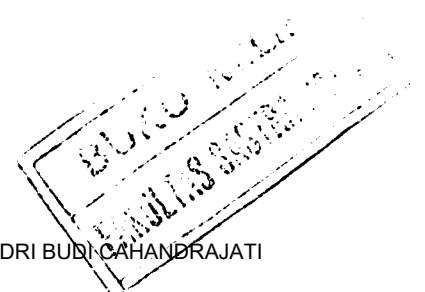 BUKU
FAKULTAS SASTRA
DRI BUDI CAHANDRAJATI